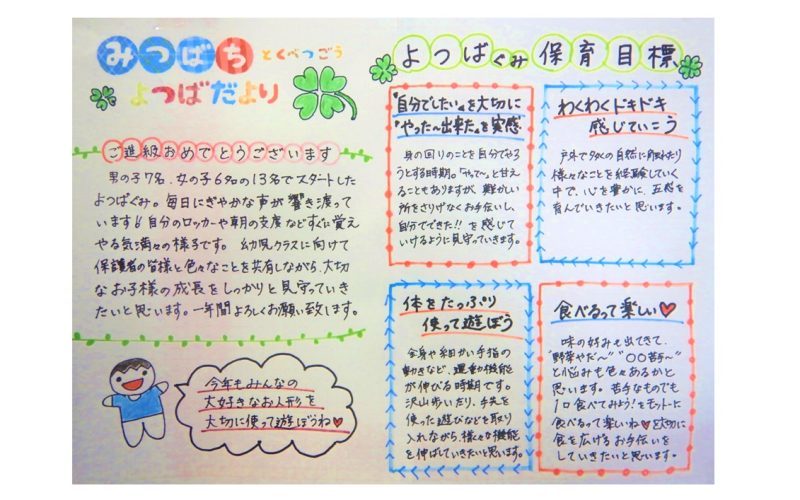 みつばち とくべつごう
よつばだより
ご進級おめでとうございます
男の子7名、女の子6名の13名でスタートした
よつばぐみ。毎日にぎやかな声が響き渡って
います♪自分のロッカーや朝の支度などすぐに覚え
やる気満々の様子です。 幼児クラスに向けて
保護者の皆様と色々なことを共有しながら、大切
なお子様の成長をしっかりと見守っていき
たいと思います。一年間よろしくお願い致します。
今年もみんなの
大好きなお人形を
大切に使って遊ぼうね♥
よつばぐみ 保育目標
"自分でしたい"を大切に
"やった〜出来た"を実感
身の回りのことを自分でやろ
うとする時期。"やって〜"と甘え
ることもありますが、難かしい
所をさりげなくお手伝いし、
自分でできた!!を感じて
いけるように見守っていきます。
わくわくドキドキ
感じていこう
戸外で多くの自然に触れたり
様々なことを経験していく
中で、心を豊かに、五感を
育んでいきたいと思います。
体をたっぷり
使って遊ぼう
全身や細かい手指の
動きなど、運動機能
が伸びる時期です。
沢山歩いたり、手先を
使った遊びなどを取り
入れながら、様々な機能
を伸ばしていきたいと思います。
食べるって楽しい♥
味の好みも出てきて、
"野菜やだ〜""〇〇苦手〜"
と悩みも色々あるかと
思います。苦手なものでも
1口食べてみよう!をモットーに
食べるって楽しいね♥を大切に
食を広げるお手伝いを
していきたいと思います。